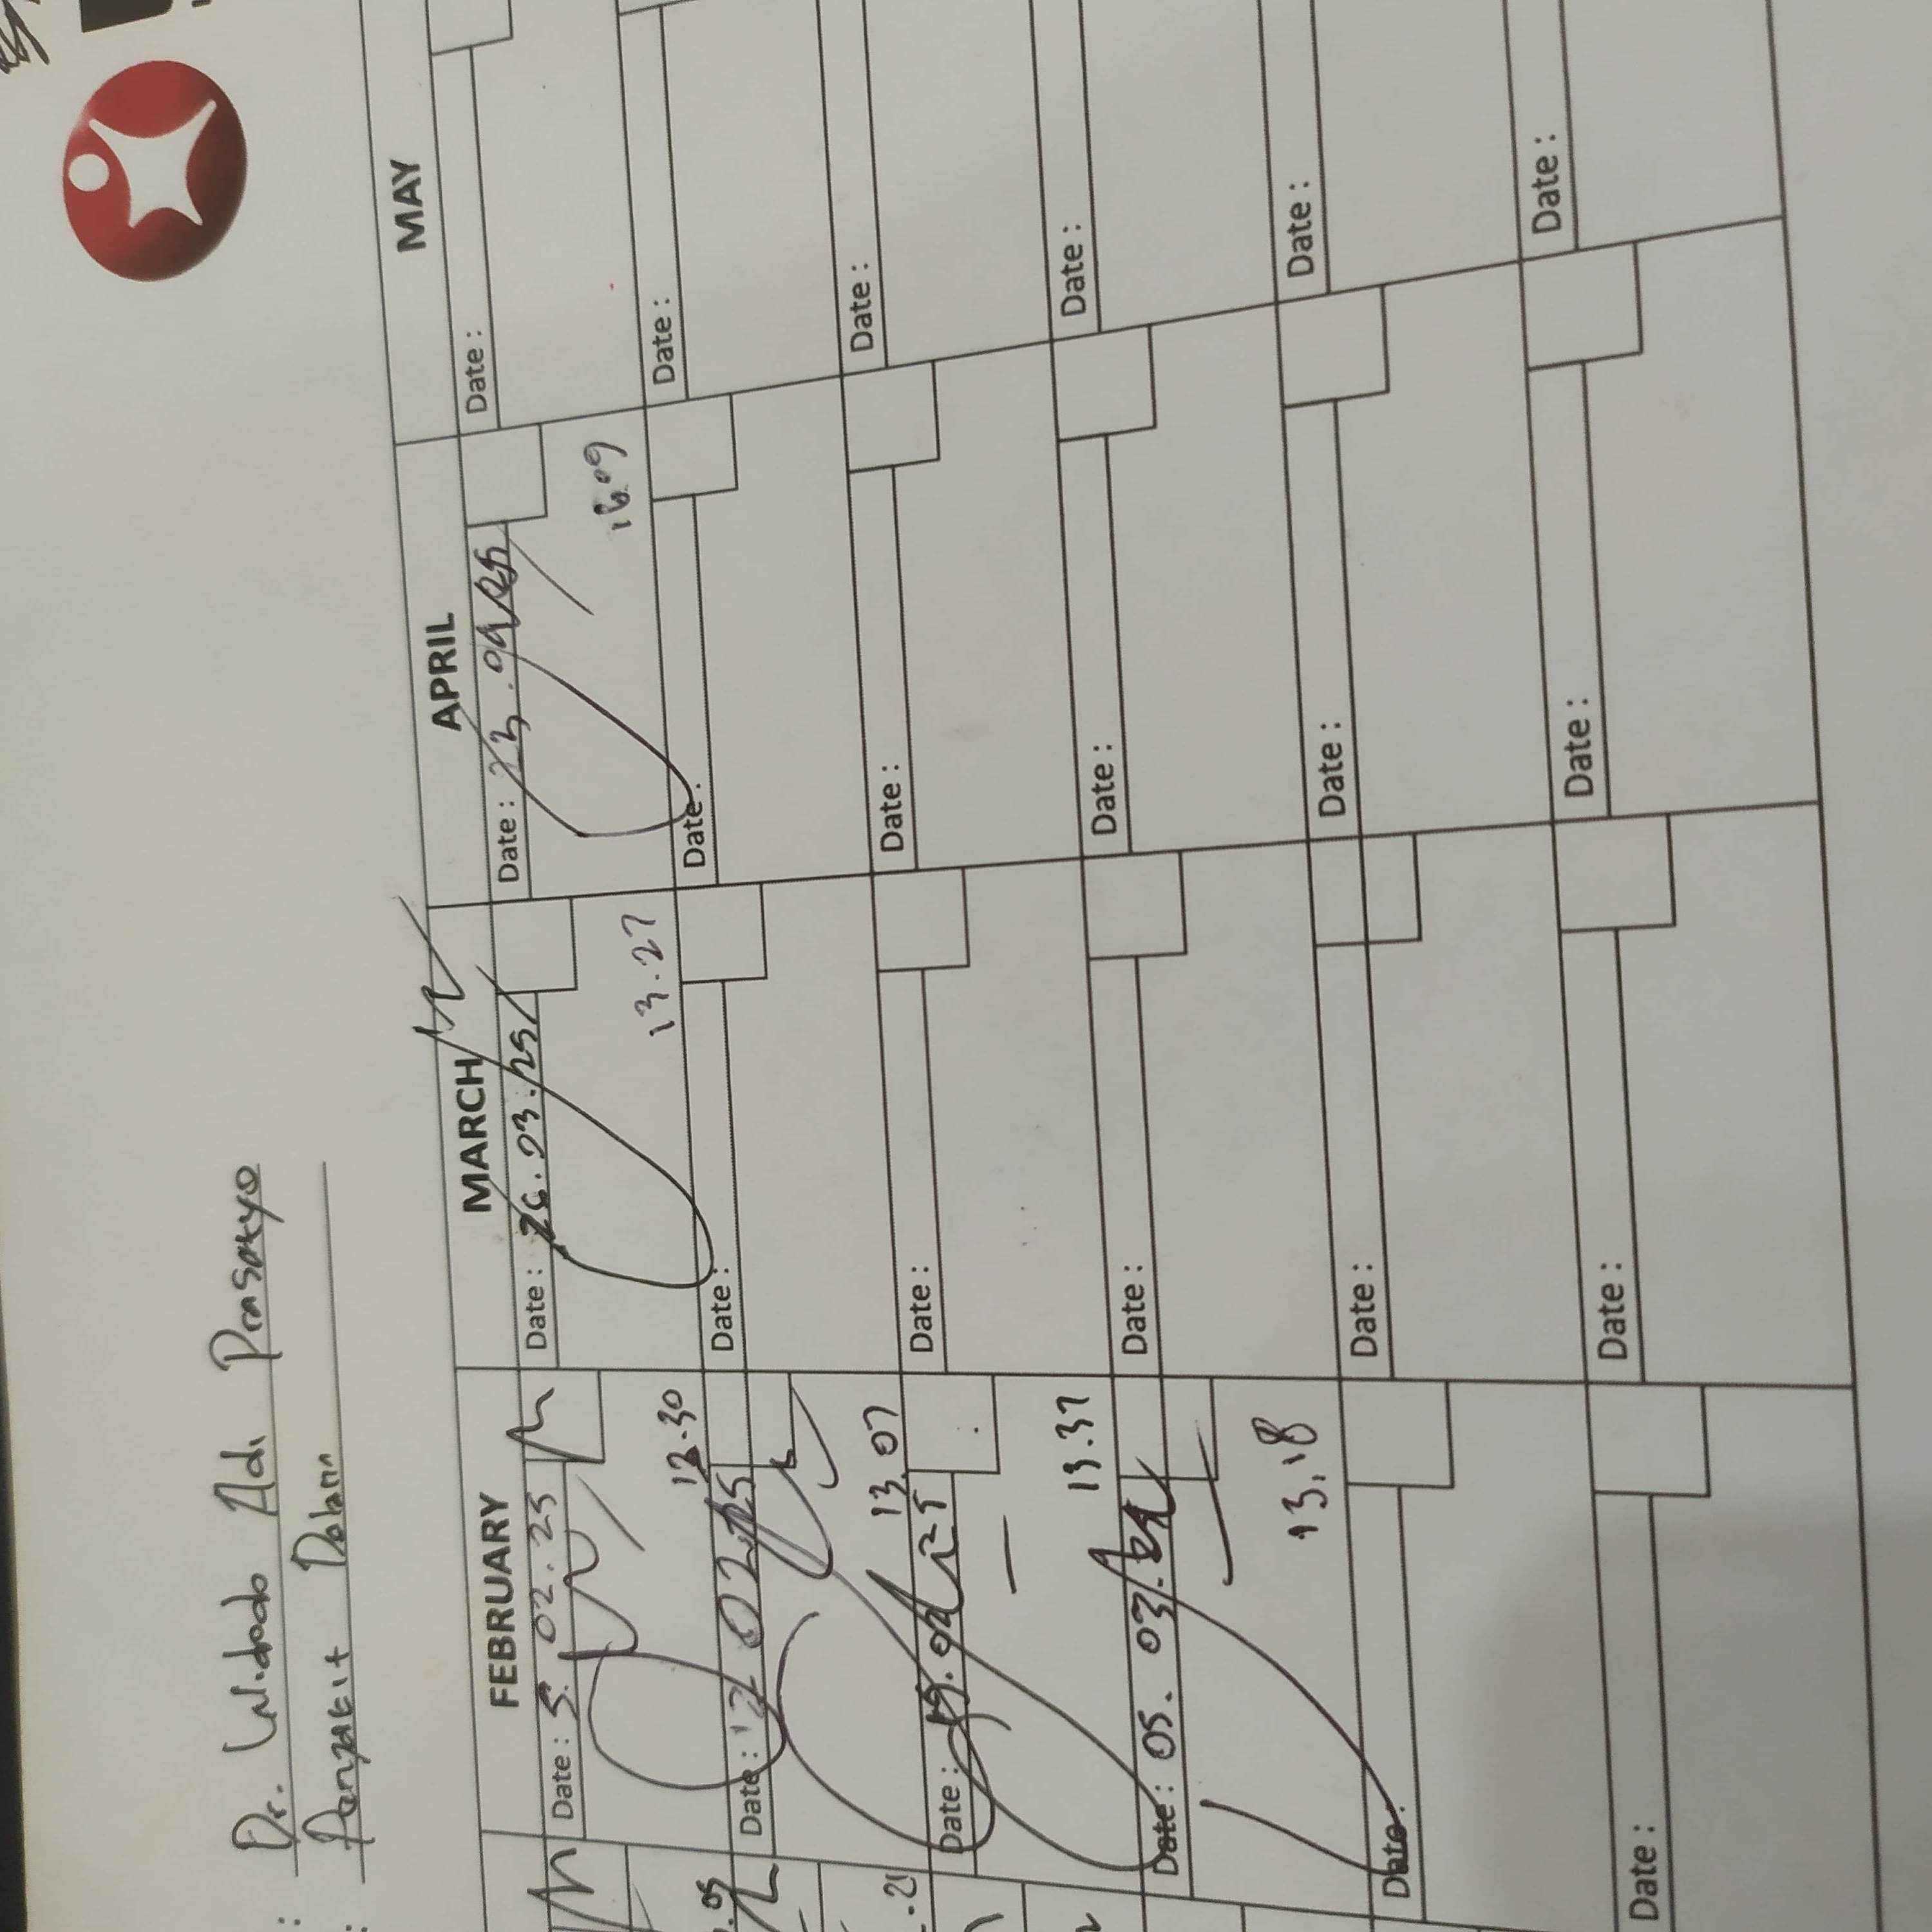 : Dr. Widodo Adi Prasetyo
: Penyakit Dalam
FEBRUARY MARCH APRIL MAY
Date : 5. 02. 25 Date : 26.03.25 Date : 23.04.25 Date :
12.30 13.27 16.09
Date : 12 02 25 Date : Date : Date :
13.07
Date : 19.02.25 Date : Date : Date :
13.37
Date : 05. 03. Date : Date : Date :
13.18
Date : Date : Date : Date :
Date : Date : Date : Date :